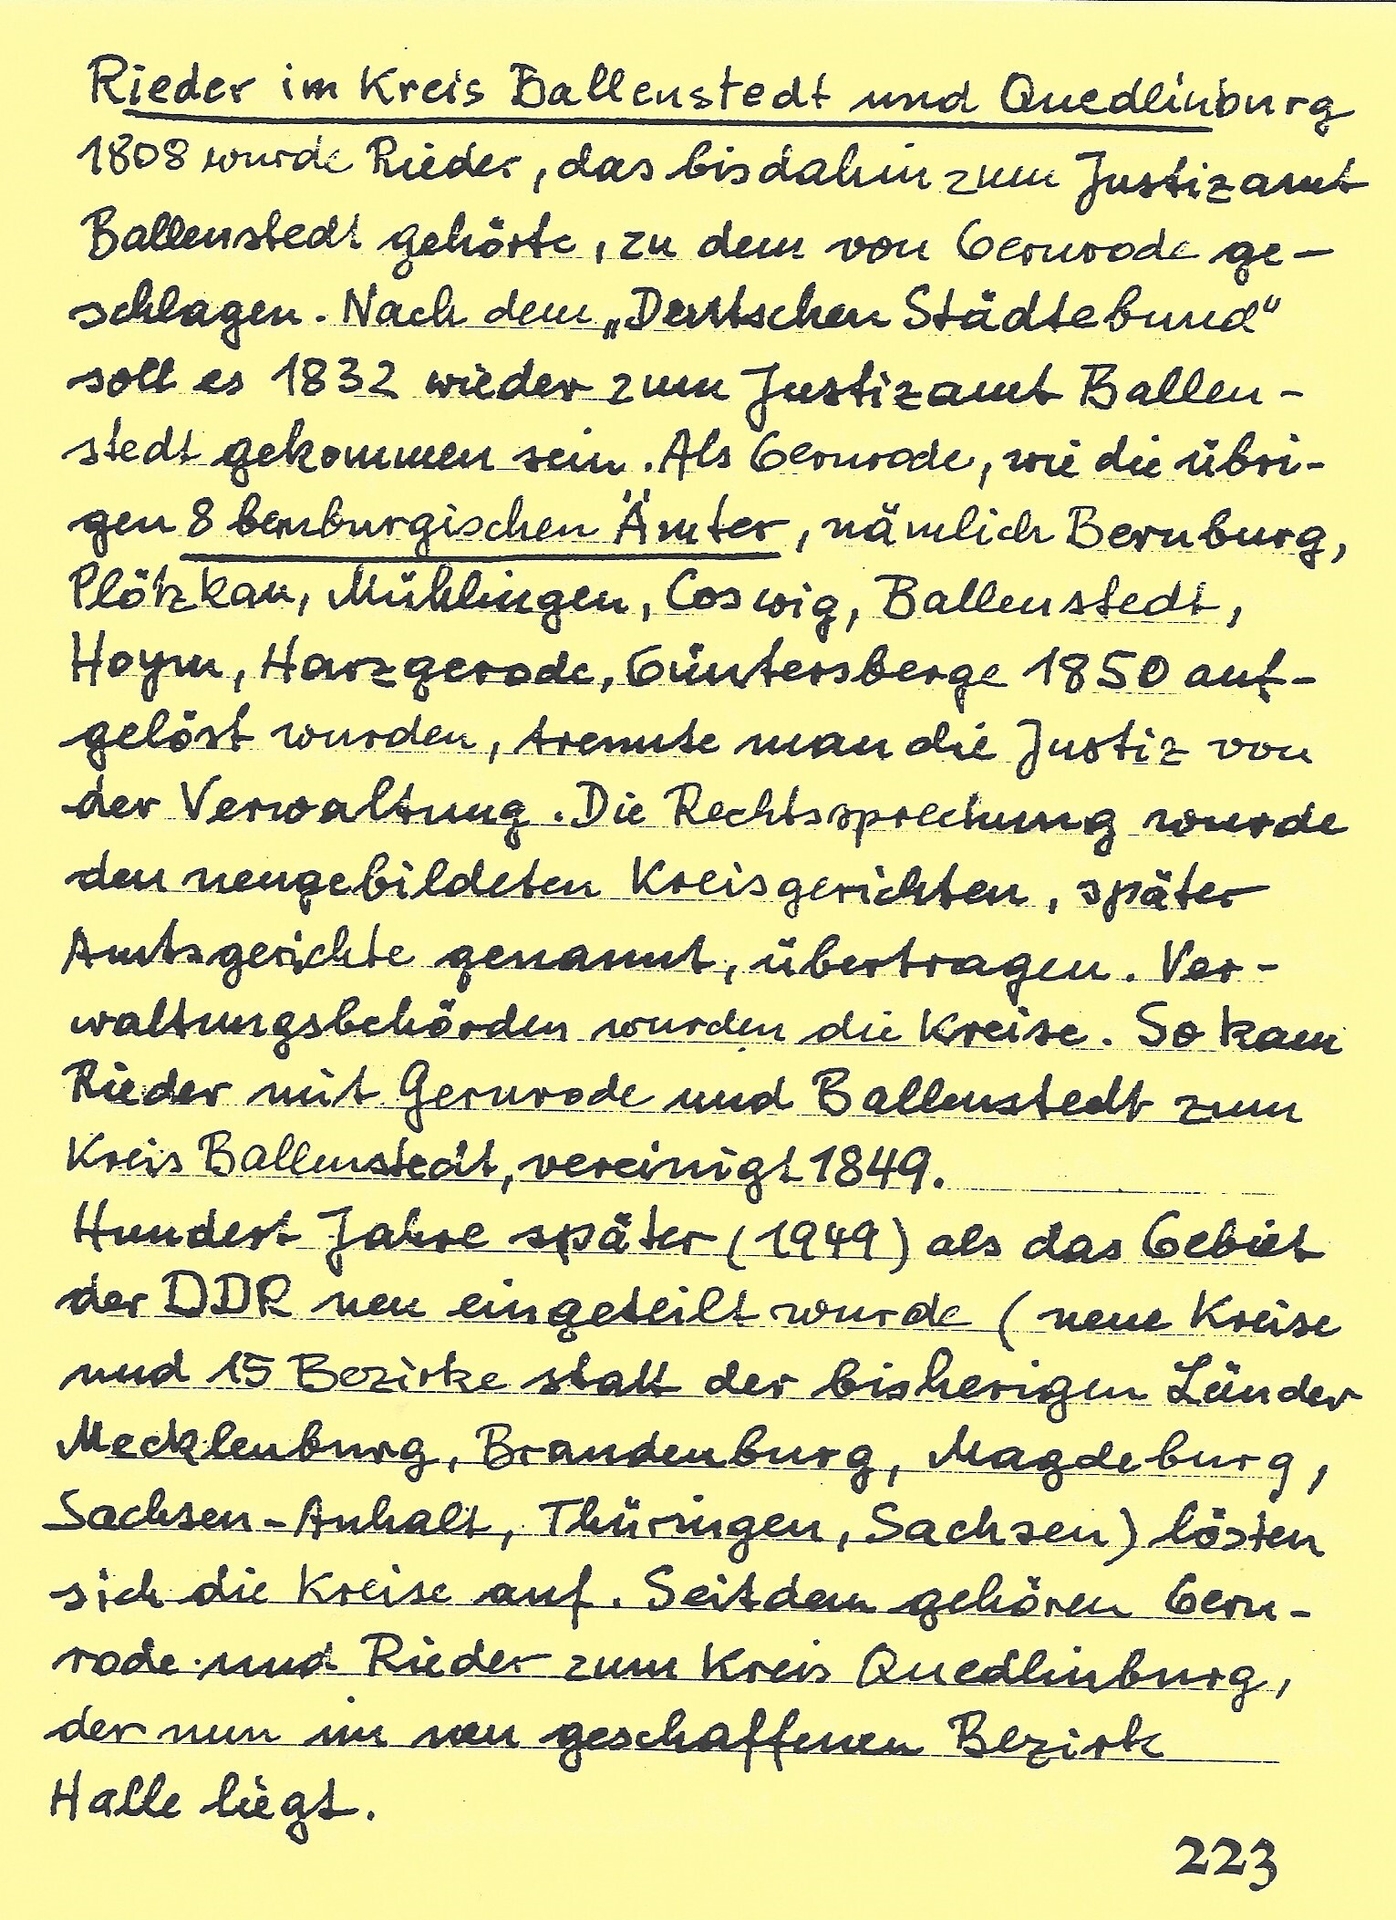 Rieder im Kreis Ballenstedt und Quedlinburg
1808 wurde Rieder, das bis dahin zum Justizamt
Ballenstedt gehörte, zu dem von Gernrode ge-
schlagen. Nach dem „Deutschen Städtebund“
soll es 1832 wieder zum Justizamt Ballen-
stedt gekommen sein. Als Gernrode, wie die übri-
gen 8 bernburgischen Ämter, nämlich Bernburg,
Plötzkau, Mühlingen, Coswig, Ballenstedt,
Hoym, Harzgerode, Güntersberge 1850 auf-
gelöst wurden, trennte man die Justiz von
der Verwaltung. Die Rechtssprechung wurde
den neugebildeten Kreisgerichten, später
Amtsgerichte genannt, übertragen. Ver-
waltungsbehörden wurden die Kreise. So kam
Rieder mit Gernrode und Ballenstedt zum
Kreis Ballenstedt, vereinigt 1849.
Hundert Jahre später (1949) als das Gebiet
der DDR neu eingeteilt wurde (neue Kreise
und 15 Bezirke statt der bisherigen Länder
Mecklenburg, Brandenburg, Magdeburg,
Sachsen-Anhalt, Thüringen, Sachsen) lösten
sich die Kreise auf. Seitdem gehören Gern-
rode und Rieder zum Kreis Quedlinburg,
der nun im neu geschaffenen Bezirk
Halle liegt.
223